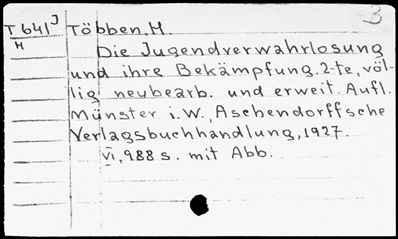 3
T641J Többen, H.
H
Die Jugendverwahrlosung
und ihre Bekämpfung. 2-te, völ-
lig neubearb. und erweit. Aufl.
Münster i. W., Aschendorffsche
Verlagsbuchhandlung, 1927.
VI, 988 s. mit Abb.